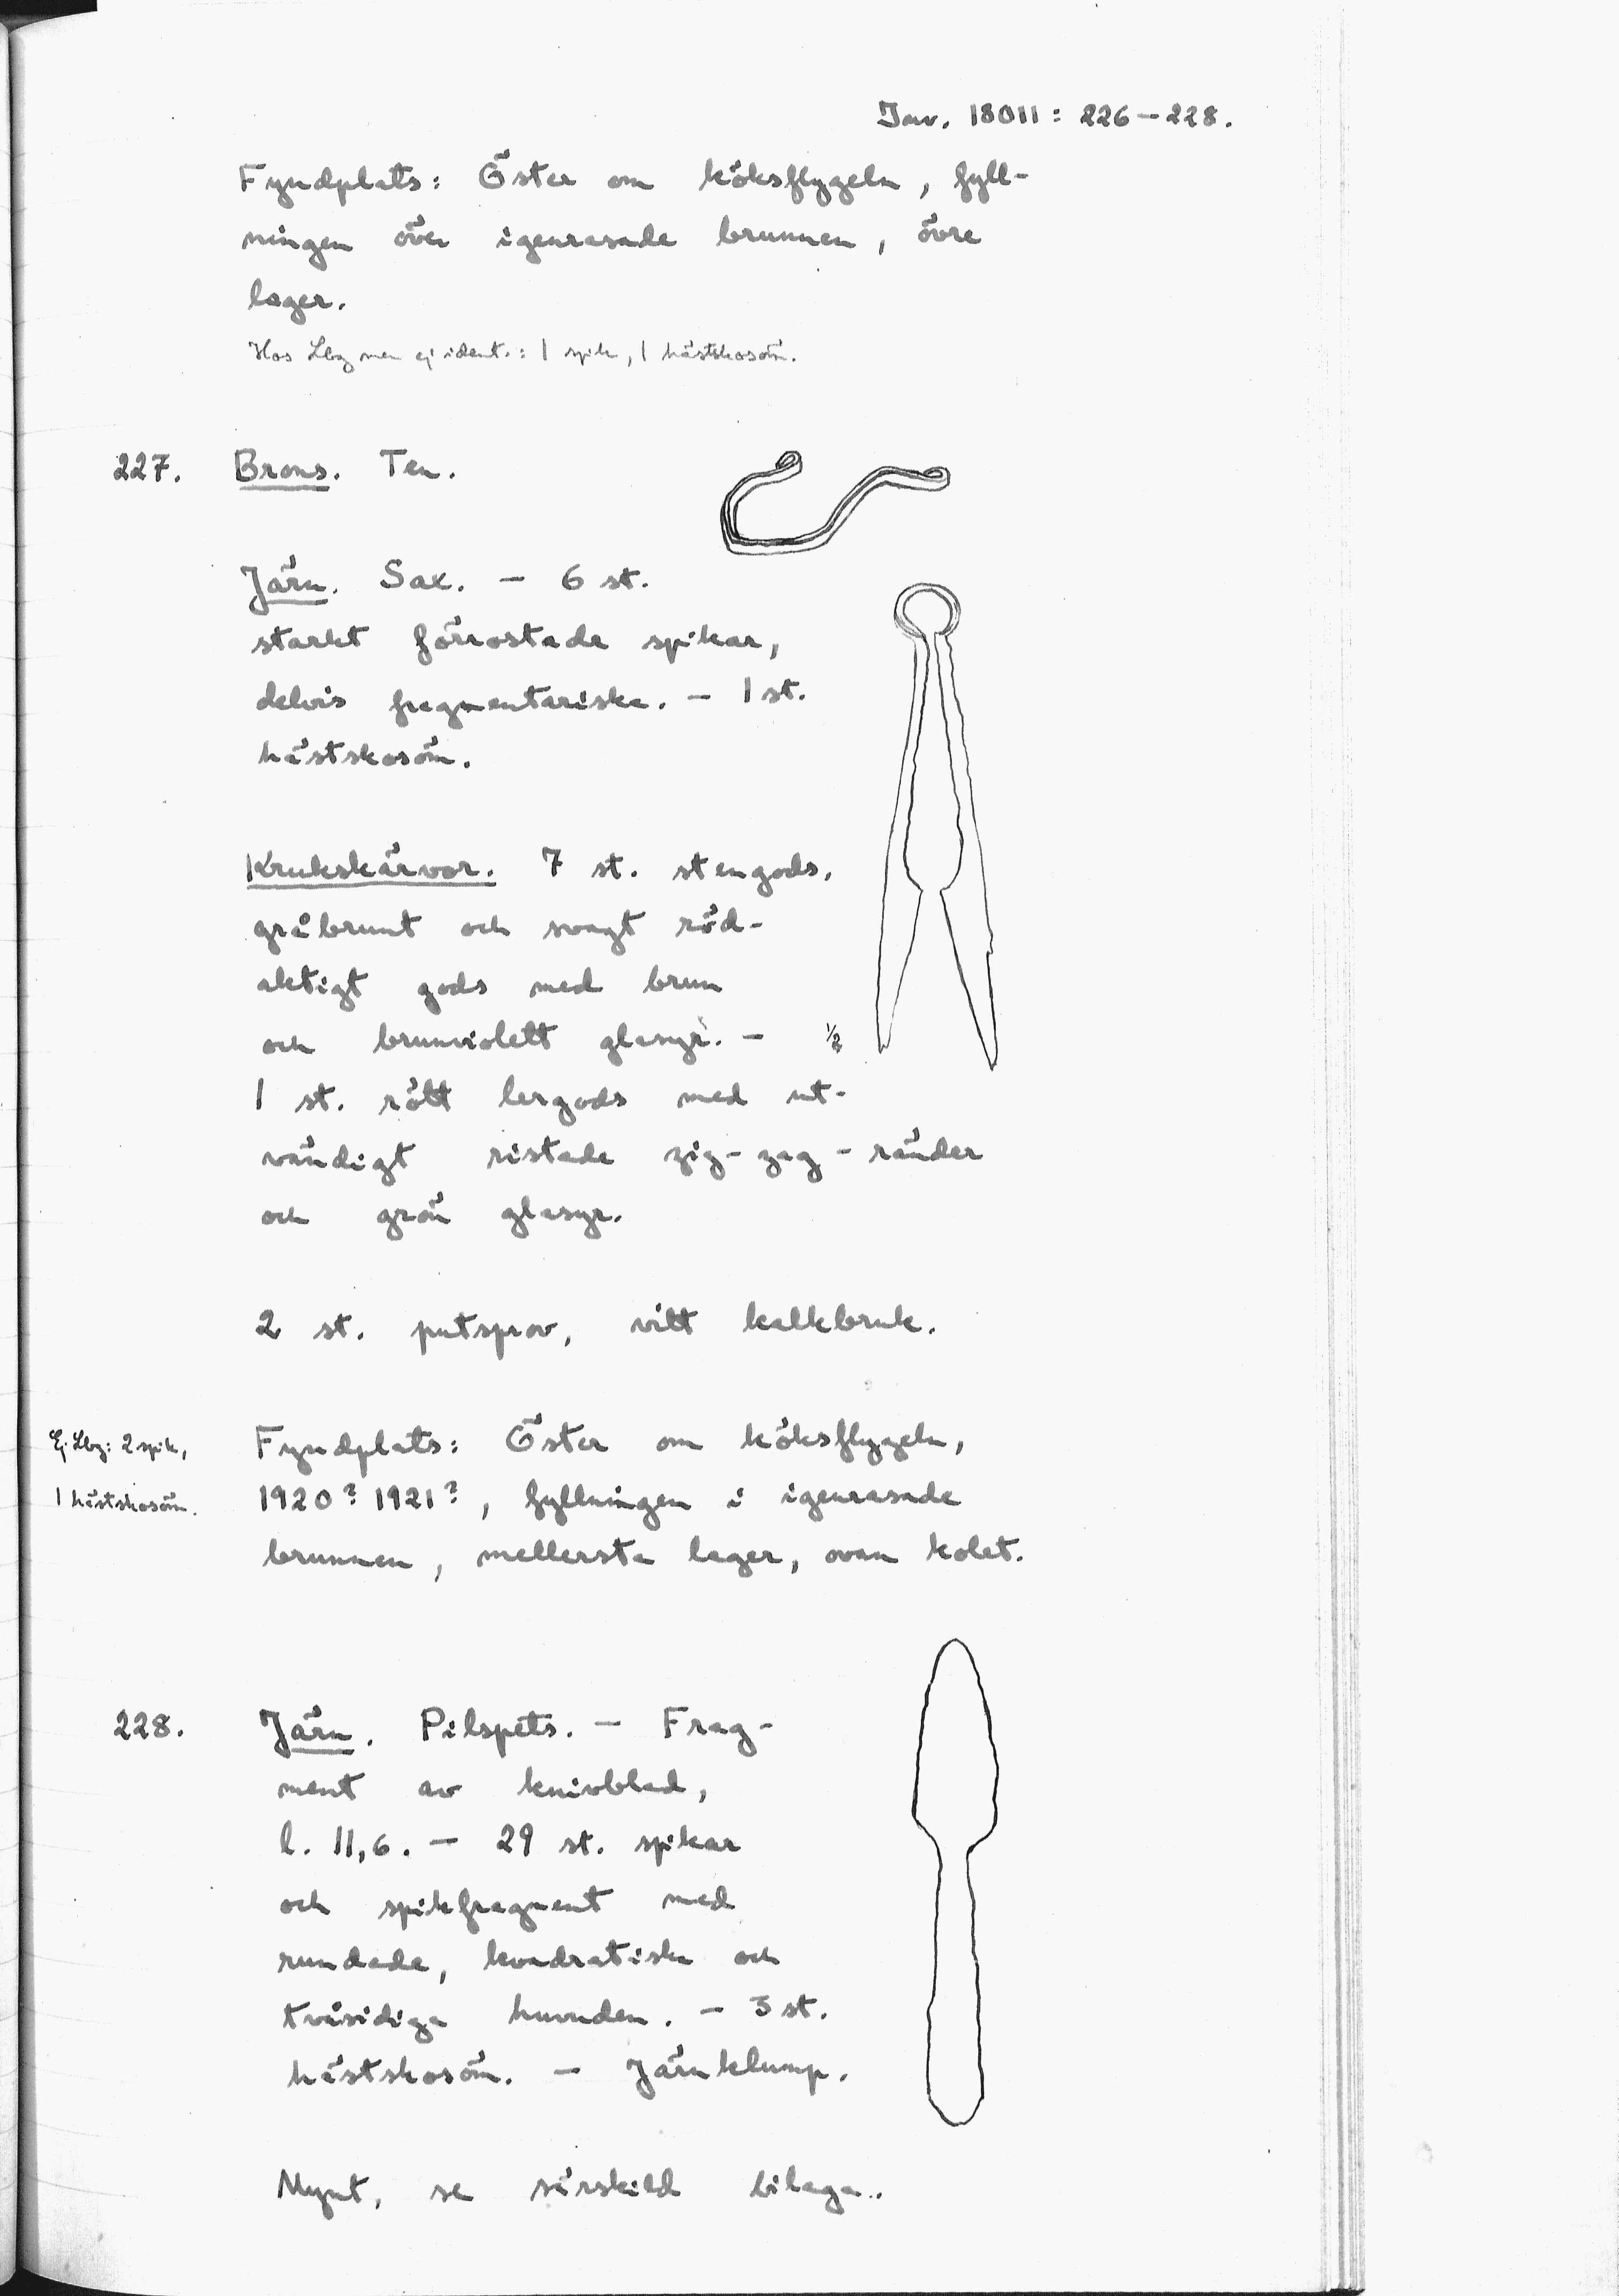 Inv. 18011 : 226 – 228.
Fyndplats: Öster om köksflygeln, fyll-
ningen över igenrasade brunnen, övre
lager.
Hos Lbg men ej ident.: 1 spik, 1 hästskosöm.
227. Brons. Ten.
Järn. Sax. – 6 st.
starkt förrostade spikar,
delvis fragmentariska. – 1 st.
hästskosöm.
Krukskärvor. 7 st. stengods,
gråbrunt och svagt röd-
aktigt gods med brun
och brunviolett glasyr. –
1/2
1 st. rött lergods med ut-
vändigt ristade zig-zag-ränder
och grön glasyr.
2 st. putsprov, vitt kalkbruk.
Ej Lbg: 2 spik,
1 hästskosöm.
Fyndplats: Öster om köksflygeln,
1920? 1921?, fyllningen i igenrasade
brunnen, mellersta lager, ovan kolet.
228. Järn. Pilspets. – Frag-
ment av knivblad,
l. 11,6. – 29 st. spikar
och spikfragment med
rundade, kvadratiska och
tvåsidiga huvuden. – 3 st.
hästskosöm. – Järnklump.
Mynt, se särskild bilaga.